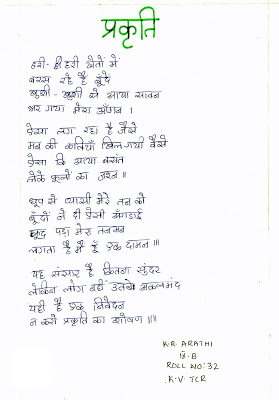 प्रकृति
हरी-हरी खेतों में
बरस रहे है बूंदे
खुशी-खुशी से आया सावन
भर गया मेरा आँगन ।
ऐसा लग रहा है जैसे
मन की कलियाँ खिल गयी वैसे
ऐसा कि आया बसंत
लेके फूलों का जश्न ॥
धूप से प्यासी मेरे तन को
बूँदों ने दी ऐसी अँगडाई
कूद पडा मेरा तनमन
लगता है मैं हूँ एक दामन ॥।
यह संसार है कितना सुंदर
लेकिन लोग नहीं उतने अकलमंद
यही है एक निवेदन
न करो प्रकृति का शोषण ॥॥
K.R. ARATHI
IX-B
ROLL NO: 32
K.V. TCR